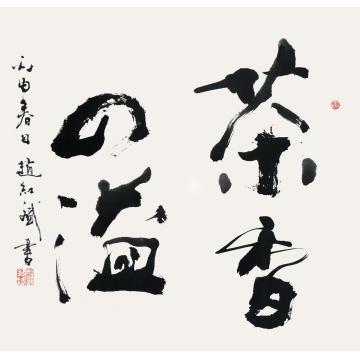 茶香
四溢
丙申春日趙紅斌書